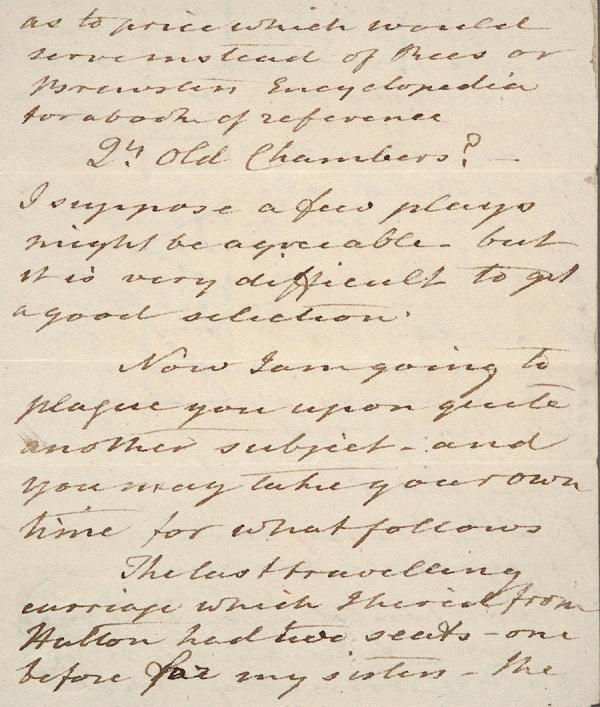 as to price which would
serve instead of Rees or
Brewsters Encyclopedia
for a book of reference
Qy. Old Chambers? —
I suppose a few plays
might be agreeable - but
it is very difficult to get
a good selection.
Now I am going to
plague you upon quite
another subject - and
you may take your own
time for what follows
The last travelling
carriage which I hired from
Hutton had two seats - one
before for my sisters - the